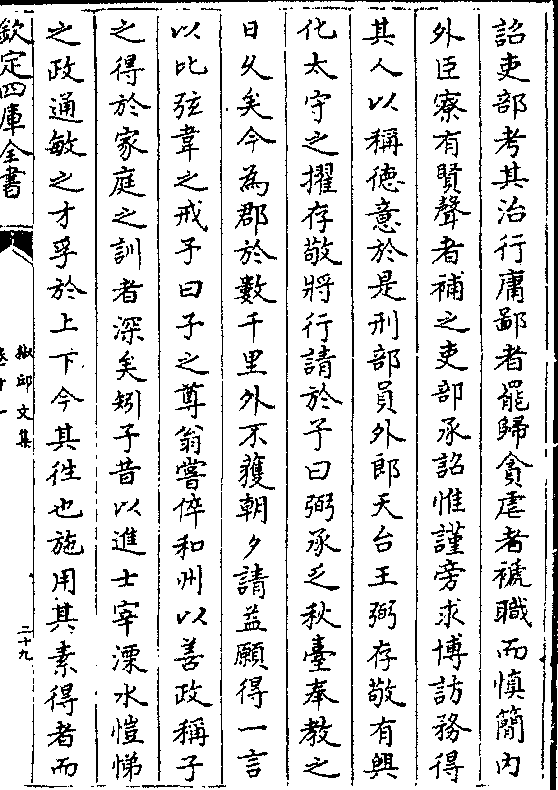 詔吏部考其治行庸鄙者罷歸貪虐者褫職而慎簡内
外臣寮有賢聲者補之吏部承詔惟謹旁求博訪務得
其人以稱徳意於是刑部員外郎天台王弼存敬有興
化太守之擢存敬將行請於予曰弼承乏秋臺奉教之
日乆矣今為郡於數千里外不獲朝夕請益願得一言
以比弦韋之戒予曰子之尊翁嘗倅和州以善政稱子
之得於家庭之訓者深矣矧子昔以進士宰溧水愷悌
之政通敏之才孚於上下今其徃也施用其素得者而
欽定四庫全書
椒邱文集
卷十一
二十九